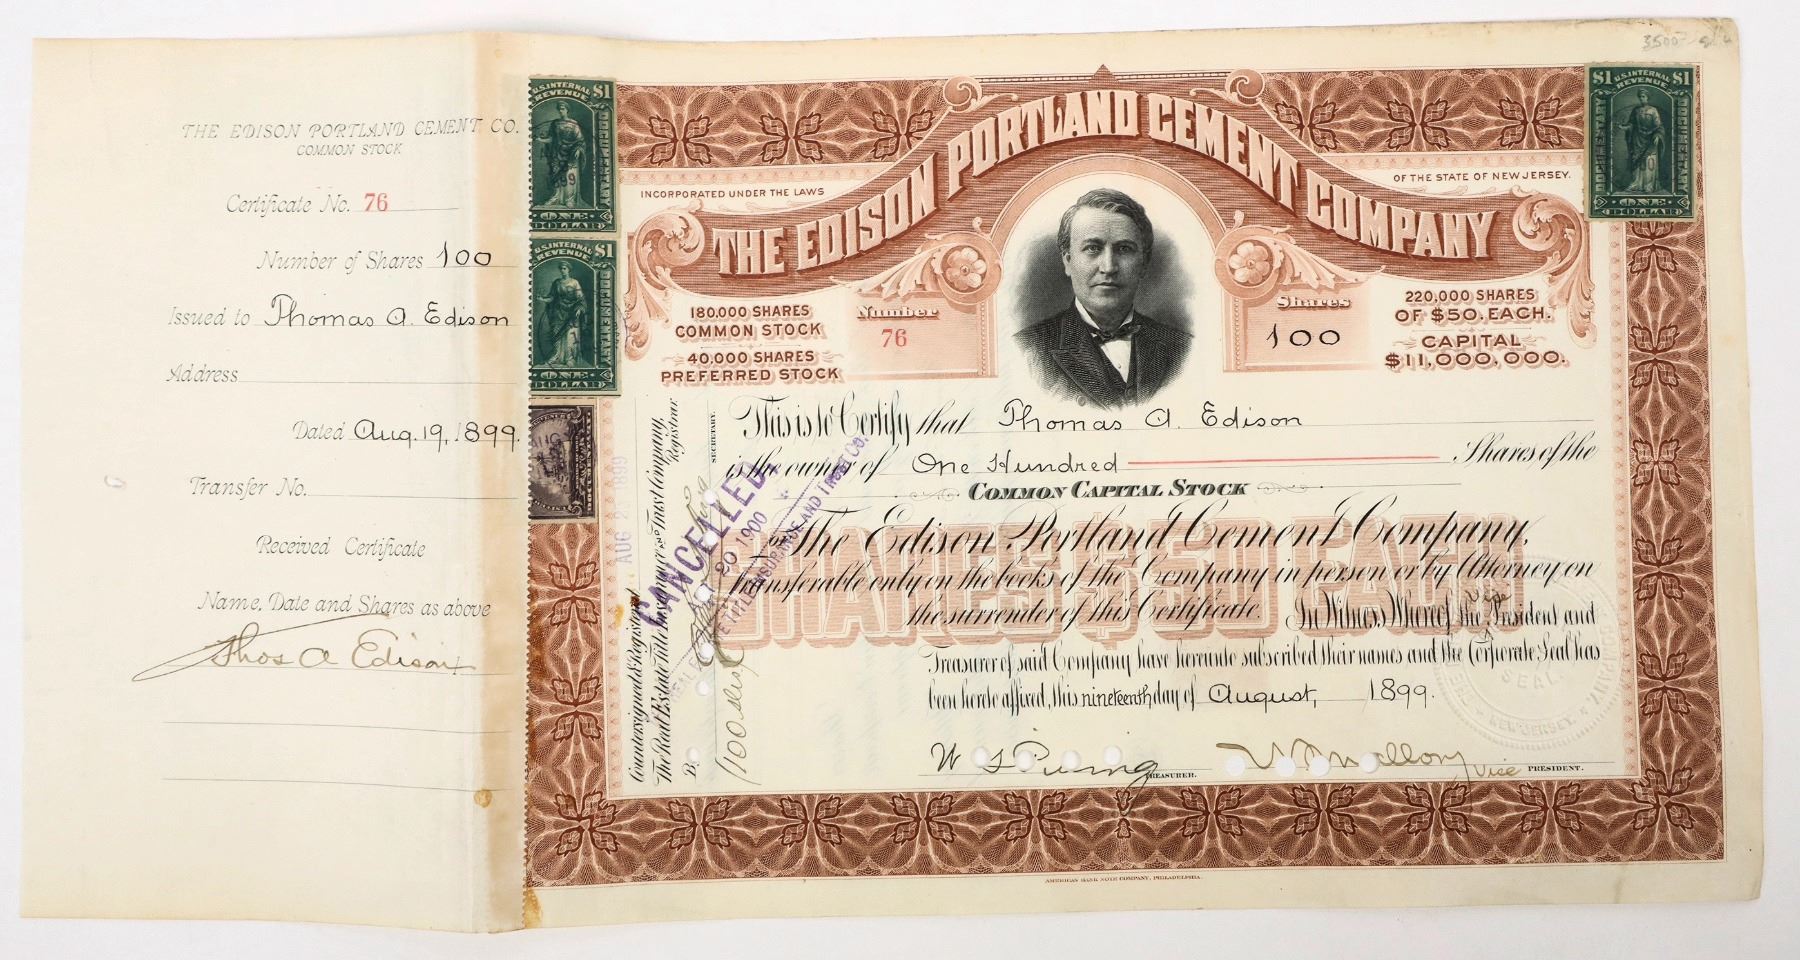 THE EDISON PORTLAND CEMENT CO.
COMMON STOCK
Certificate No. 76
Number of Shares 100
Issued to Thomas A. Edison
Address
Dated Aug. 19, 1899.
Transfer No.
Received Certificate
Name, Date and Shares as above
Thos A Edison
$1 U.S. INTERNAL REVENUE
DOCUMENTARY
ONE DOLLAR
U.S. INTERNAL REVENUE $1
DOCUMENTARY
ONE DOLLAR
$1 U.S. INTERNAL REVENUE $1
DOCUMENTARY
DOCUMENTARY
ONE DOLLAR
INCORPORATED UNDER THE LAWS
OF THE STATE OF NEW JERSEY.
THE EDISON PORTLAND CEMENT COMPANY
180,000 SHARES
COMMON STOCK
40,000 SHARES
PREFERRED STOCK
Number
76
Shares
100
220,000 SHARES
OF $50. EACH.
CAPITAL
$11,000,000.
This is to Certify that Thomas A. Edison
is the owner of One Hundred Shares of the
COMMON CAPITAL STOCK
of The Edison Portland Cement Company,
transferable only on the books of the Company in person or by Attorney on
the surrender of this Certificate. In Witness Whereof the Vice President and
Treasurer of said Company have hereunto subscribed their names and the Corporate Seal has
been hereto affixed, this nineteenth day of August, 1899.
SHARES $50 EACH
W S Pilling
TREASURER.
W. S. Mallory
Vice PRESIDENT.
Countersigned & Registered
The Real Estate Title Insurance and Trust Company,
Registrar
By
SECRETARY.
CANCELLED
20 1900
TITLE INSURANCE AND TRUST CO.
AUG 2 1899
100
SEAL
NEW JERSEY
AMERICAN BANK NOTE COMPANY, PHILADELPHIA.